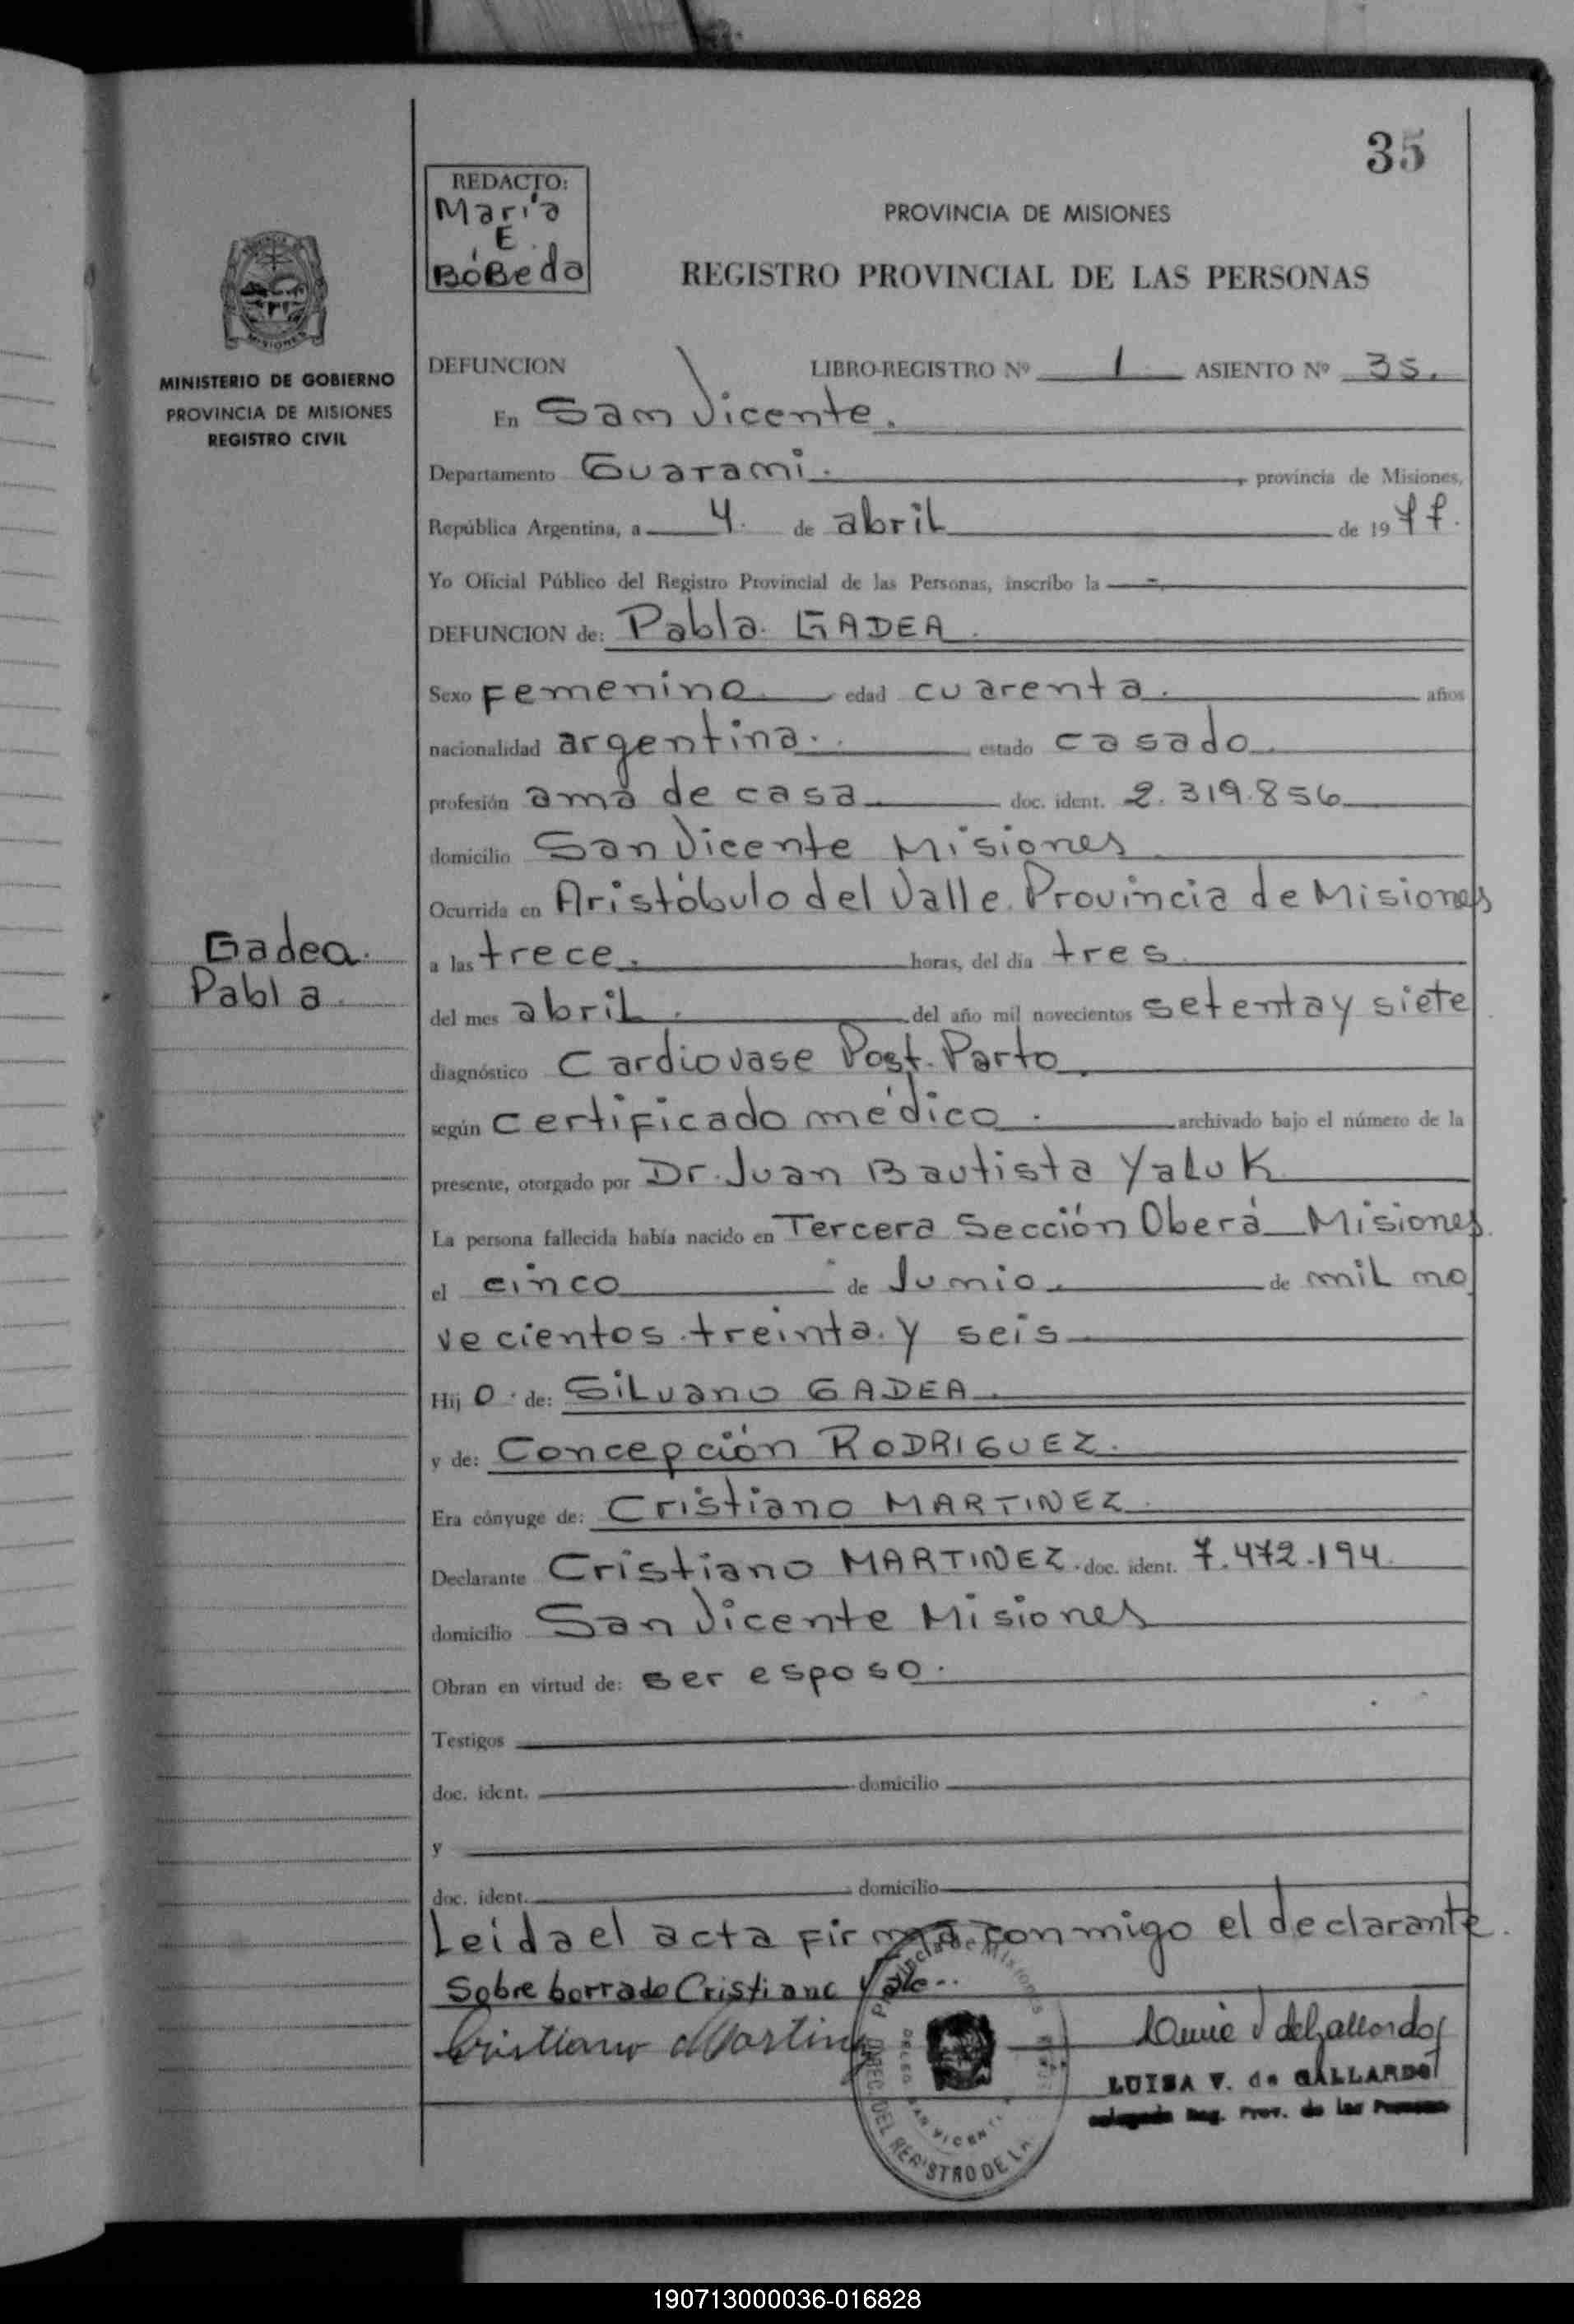 35
REDACTO:
María
E.
BóBeda
PROVINCIA DE MISIONES
REGISTRO PROVINCIAL DE LAS PERSONAS
MINISTERIO DE GOBIERNO
PROVINCIA DE MISIONES
REGISTRO CIVIL
DEFUNCION LIBRO-REGISTRO Nº 1 ASIENTO Nº 35.
En San Vicente.
Departamento Guarani. , provincia de Misiones,
República Argentina, a 4. de abril de 1977.
Yo Oficial Público del Registro Provincial de las Personas, inscribo la
DEFUNCION de: Pabla GADEA.
Sexo Femenino edad cuarenta. años
nacionalidad argentina. estado casado.
profesión ama de casa doc. ident. 2.319.856
domicilio San Vicente Misiones
Ocurrida en Aristóbulo del Valle Provincia de Misiones
Gadea.
Pabla
a las trece. horas, del día tres
del mes abril. del año mil novecientos setenta y siete
diagnóstico Cardiovase Post-Parto.
según certificado médico. archivado bajo el número de la
presente, otorgado por Dr. Juan Bautista Yaluk
La persona fallecida había nacido en Tercera Sección Oberá Misiones
el cinco de Junio. de mil no
vecientos treinta y seis
Hij o de: Silvano GADEA.
y de: Concepción RODRIGUEZ.
Era cónyuge de: Cristiano MARTINEZ.
Declarante Cristiano MARTINEZ. doc. ident. 7.472.194
domicilio San Vicente Misiones
Obran en virtud de: ser esposo.
Testigos
doc. ident. domicilio
y
doc. ident. domicilio
Leida el acta firma conmigo el declarante.
Sobre borrado Cristiano Vale..
Cristiano Martinez
LUISA V. de GALLARDO
Delegada Reg. Prov. de las Personas
Provincia de Misiones
DIREC. DEL REGISTRO DE LA
SAN VICENTE
190713000036-016828